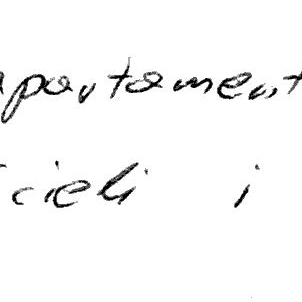 apartament
cieli i